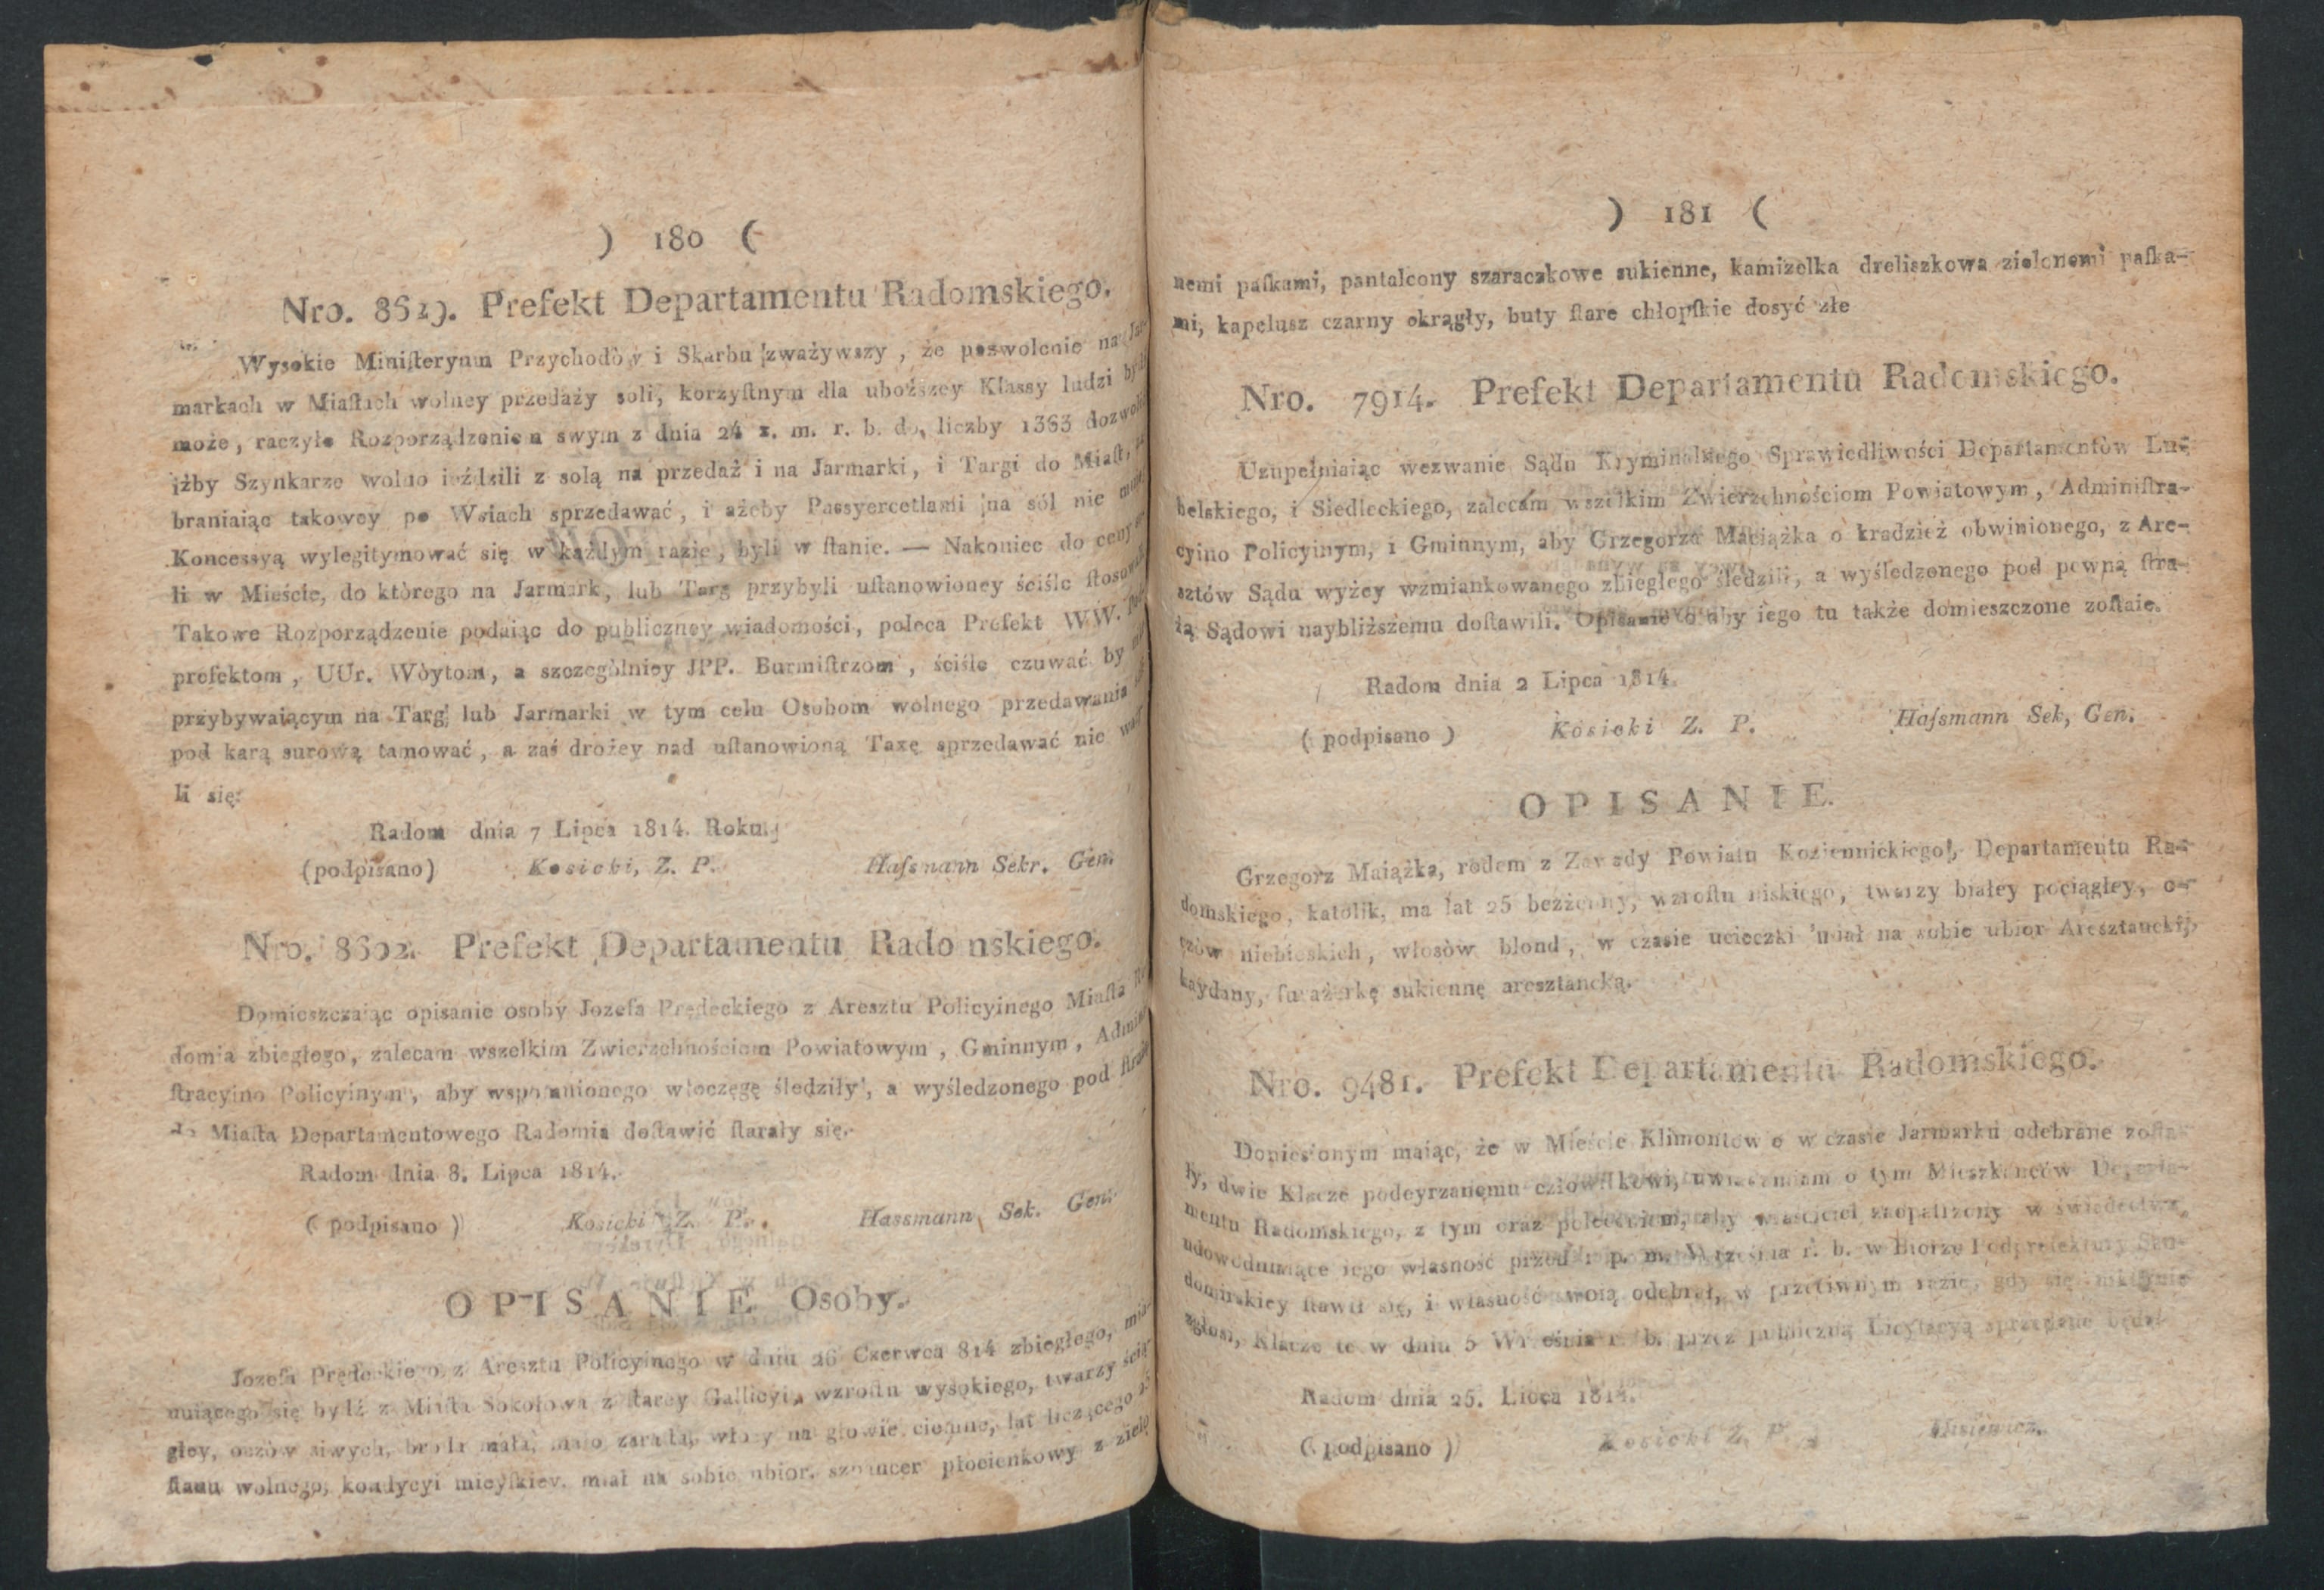 ) 180 (
Nro. 8629. Prefekt Departamentu Radomskiego.
Wysokie Miniſteryum Przychodòw i Skarbu zważywszy, że pozwolenie na Jar-
markach w Miaſtach wolney przedaży soli, korzyſtnym dla uboższey Klassy ludzi bydź
może, raczyło Rozporządzeniem swym z dnia 24 z. m. r. b. do liczby 1363 dozwolić
iżby Szynkarze wolno ieździli z solą na przedaż i na Jarmarki, i Targi do Miaſt,
braniaiąc takowey po Wsiach sprzedawać, i ażeby Passyercetlami na sól nie
Koncessyą wylegitymować się w każdym razie, byli w ſtanie. — Nakoniec do ceny
li w Mieście, do którego na Jarmark, lub Targ przybyli uſtanowioney ściśle ſtosowali
Takowe Rozporządzenie podaiąc do publiczney wiadomości, poleca Prefekt WW. Pod
prefektom, UUr. Wòytom, a szczególniey JPP. Burmiſtrzom, ściśle czuwać by
przybywaiącym na Targi lub Jarmarki w tym celu Osobom wolnego przedawania
pod karą surową tamować, a zaś drożey nad uſtanowioną Taxę sprzedawać nie
li się:
Radom dnia 7 Lipca 1814. Roku
(podpisano) Kosicki, Z. P. Haſsmann Sekr. Gen.
Nro. 8602. Prefekt Departamentu Radomskiego.
Domieszczaiąc opisanie osoby Jozefa Prędeckiego z Aresztu Policyinego Miaſta Ra
domia zbiegłego, zalecam wszelkim Zwierzchnościom Powiatowym, Gminnym, Admini
ſtracyino Policyinym, aby wspomnionego włoczęgę śledziły, a wyśledzonego pod ſtrażą
do Miaſta Departamentowego Radomia doſtawić ſtarały się.
Radom dnia 8. Lipca 1814.
( podpisano ) Kosicki Z. P. Hassmann Sek. Gen.
OPISANIE Osoby.
Jozefa Prędeckiego z Aresztu Policyinego w dniu 26 Czerwca 814 zbiegłego, mia-
nuiącego się bydź z Miaſta Sokołowa z ſtarey Gallicyi, wzroſtu wysokiego, twarzy ścią
głey, oczòw siwych, broda mała, mało zaraſta, włosy na głowie ciemne, lat liczącego
ſtanu wolnego, kondycyi mieyſkiey, miał na sobie ubior, szpancer płocienkowy z zielo
) 181 (
nemi paſkami, pantaleony szaraczkowe sukienne, kamizelka dreliszkowa zielonemi paſka-
mi, kapelusz czarny okrągły, buty ſtare chłopſkie dosyć złe
Nro. 7914. Prefekt Departamentu Radomskiego.
Uzupełniaiąc wezwanie Sądu Kryminalnego Sprawiedliwości Departamentòw Lu-
belskiego, i Siedleckiego, zalecam wszelkim Zwierzchnościom Powiatowym, Adminiſtra-
cyino Policyinym, i Gminnym, aby Grzegorza Maiążka o kradzież obwinionego, z Are-
sztów Sądu wyżey wzmiankowanego zbiegłego śledzili, a wyśledzonego pod pewną ſtra-
żą Sądowi naybliższemu doſtawili. Opisanie osoby iego tu także domieszczone zoſtaie.
Radom dnia 2 Lipca 1814.
( podpisano ) Kosicki Z. P. Haſsmann Sek, Gen.
OPISANIE.
Grzegorz Maiążka, rodem z Zawady Powiatu Koziennickiego, Departamentu Ra-
domskiego, katolik, ma lat 25 bezżenny, wzroſtu niskiego, twarzy białey pociągłey, o-
czòw niebieskich, włosòw blond, w czasie ucieczki miał na sobie ubior Aresztancki,
kaydany, furażerkę sukiennę aresztancką.
Nro. 9481. Prefekt Departamentu Radomskiego.
Doniesionym maiąc, że w Mieście Klimontowe w czasie Jarmarku odebrane zoſta-
ły, dwie Klacze podeyrzanemu człowiekowi, uwiadamiam o tym Mieszkańców Departa-
mentu Radomskiego, z tym oraz poleceniem, aby właściciel zaopatrzony w świadectwa,
udowodniaiące iego własność przed 1 p. m. Września r. b. w Biorze Podprefektury San-
domirskiey ſtawił się, i własność swoią odebrał, w przeciwnym razie, gdy się nikt nie
zgłosi, Klacze te w dniu 5 Września r. b. przez publiczną Licytacyą sprzedane będą.
Radom dnia 25. Lipca 1814.
( podpisano ) Kosicki Z. P. Misiewicz.